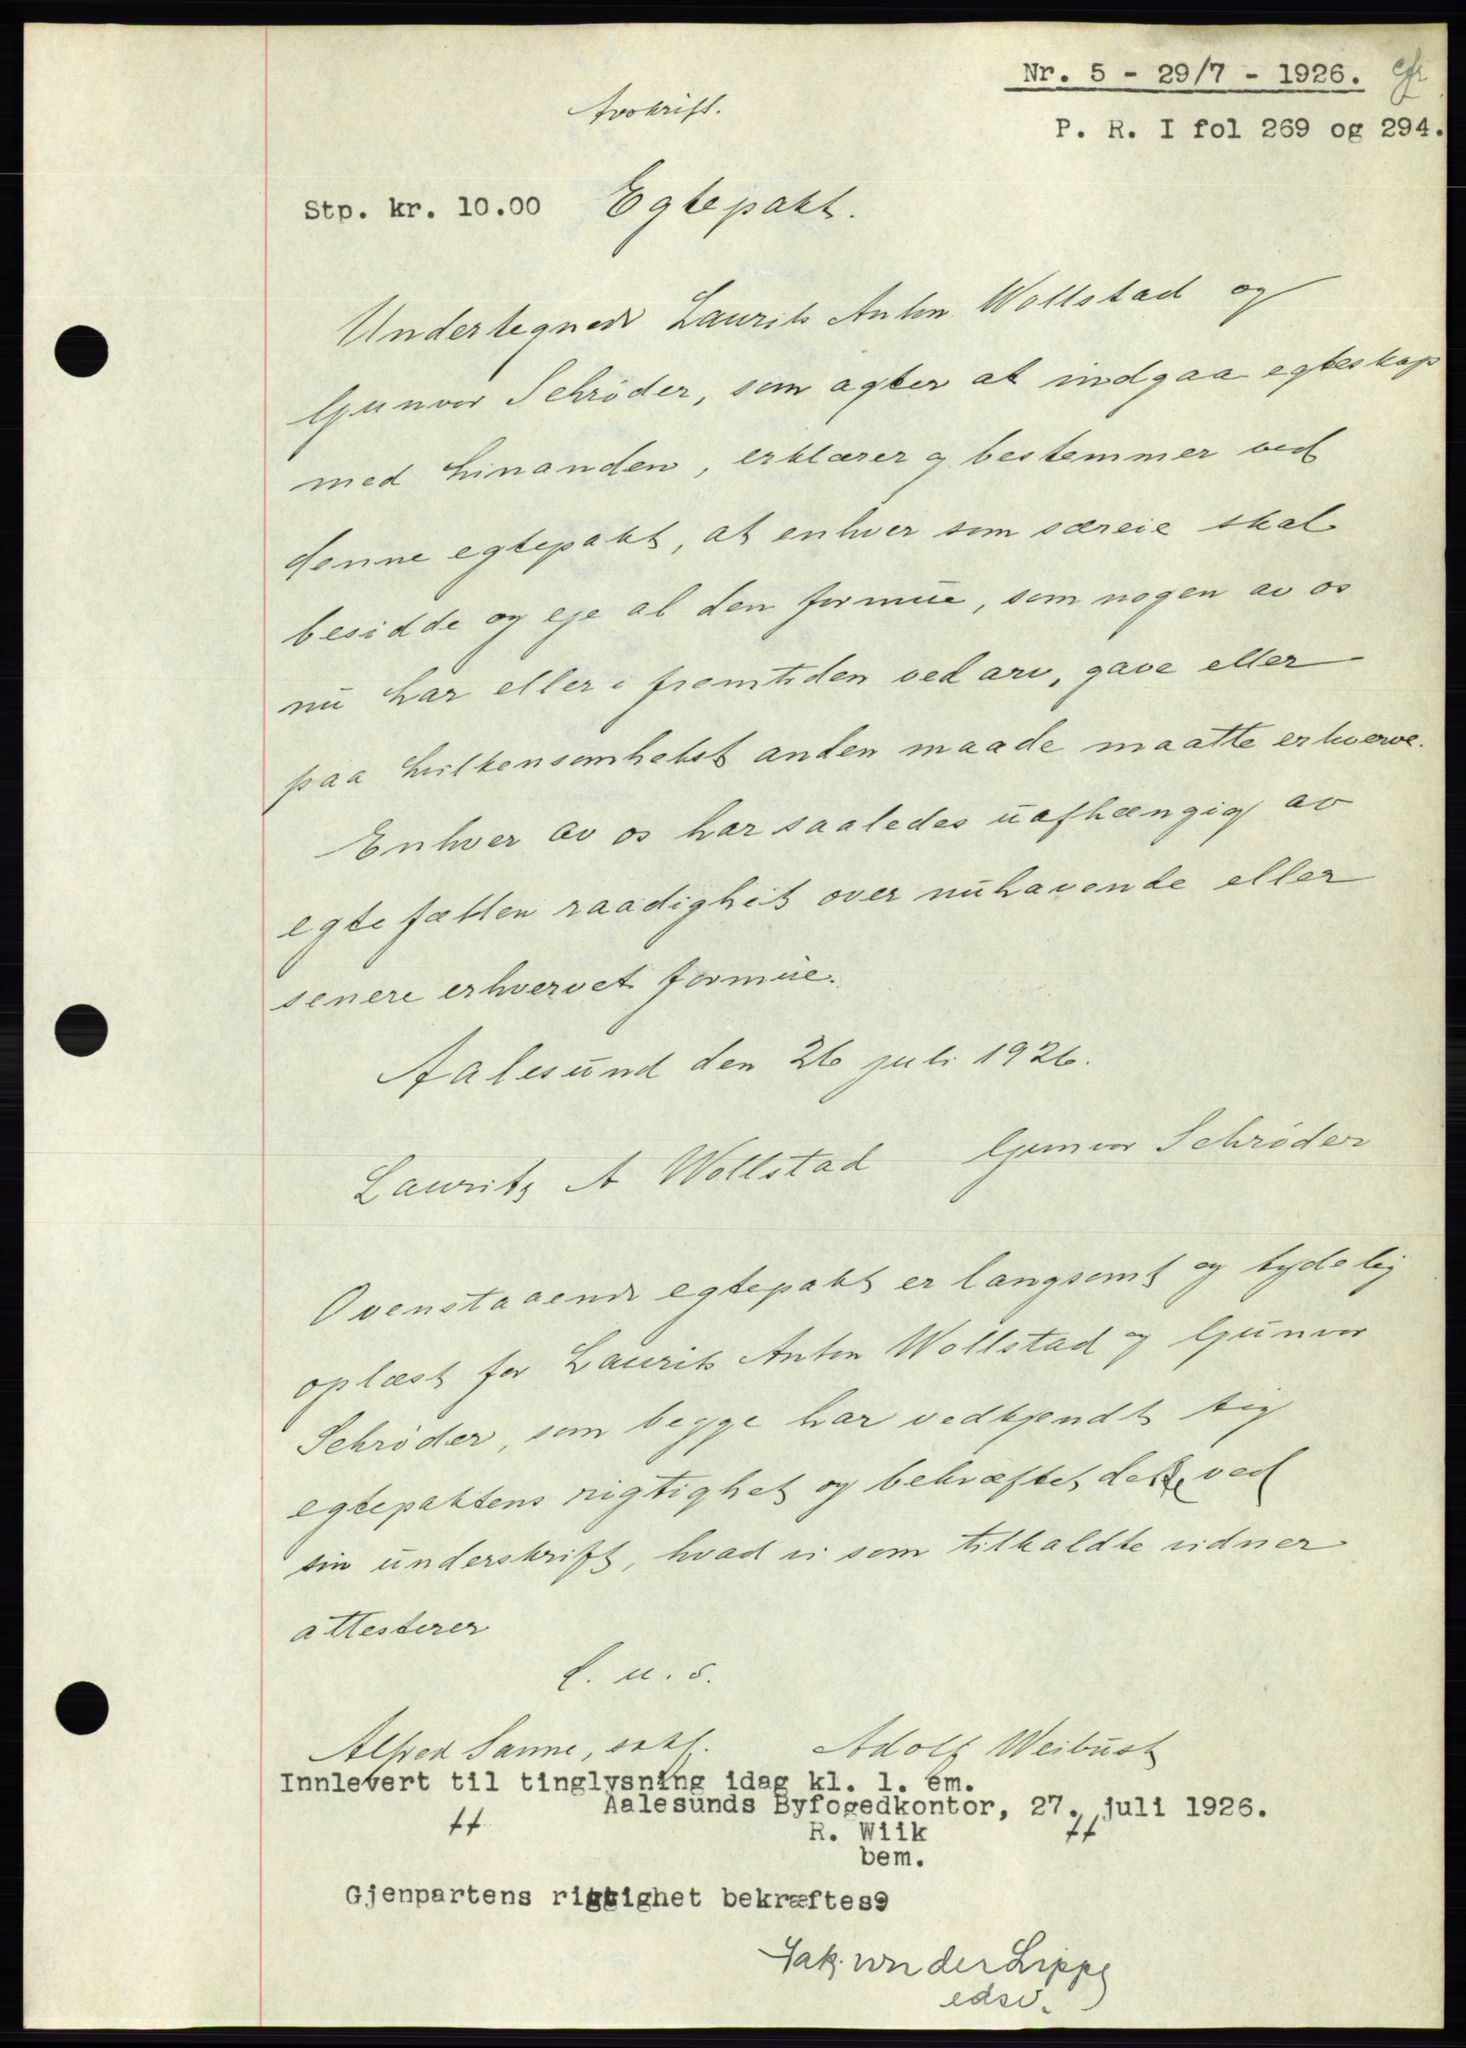 Nr. 5 - 29/7 - 1926. cfr
Avskrift.
P. R. I fol 269 og 294.
Stp. kr. 10.00 Egtepakt.
Undertegnede Laurits Anton Wollstad og
Gunvor Schrøder, som agter at indgaa egteskap
med hinanden, erklærer og bestemmer ved
denne egtepakt, at enhver som særeie skal
besidde og eje al den formue, som nogen av os
nu har eller i fremtiden ved arv, gave eller
paa hvilkensomhelst anden maade maatte erhverve.
Enhver av os har saaledes uafhængig av
egtefællen raadighet over nuhavende eller
senere erhvervet formue.
Aalesund den 26 juli 1926.
Laurits A Wollstad Gunvor Schrøder
Ovenstaaende egtepakt er langsomt og tydelig
oplæst for Laurits Anton Wollstad og Gunvor
Schrøder, som begge har vedkjendt sig
egtepaktens rigtighet og bekræftet dette ved
sin underskrift, hvad vi som tilkaldte vidner
attesterer
l. u. s.
Alfred Sanne, sakf. Adolf Weibust
Innlevert til tinglysning idag kl. 1. em.
Aalesunds Byfogedkontor, 27. juli 1926.
R. Wiik
bem.
Gjenpartens rigtighet bekræftes9
Jak. von der Lippe
edsv.